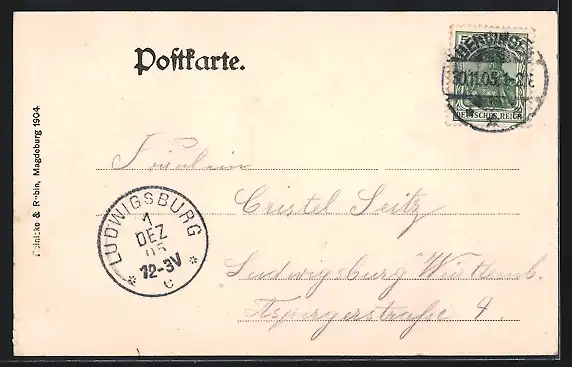 Postkarte.
DEUTSCHES REICH
30.11.05.
Reinicke & Rubin, Magdeburg 1904.
Fräulein
Cristel Seitz
LUDWIGSBURG
1
DEZ
05
12-3V
C
"Ludwigsburg" Württemb.
Aspergerstraße 4.